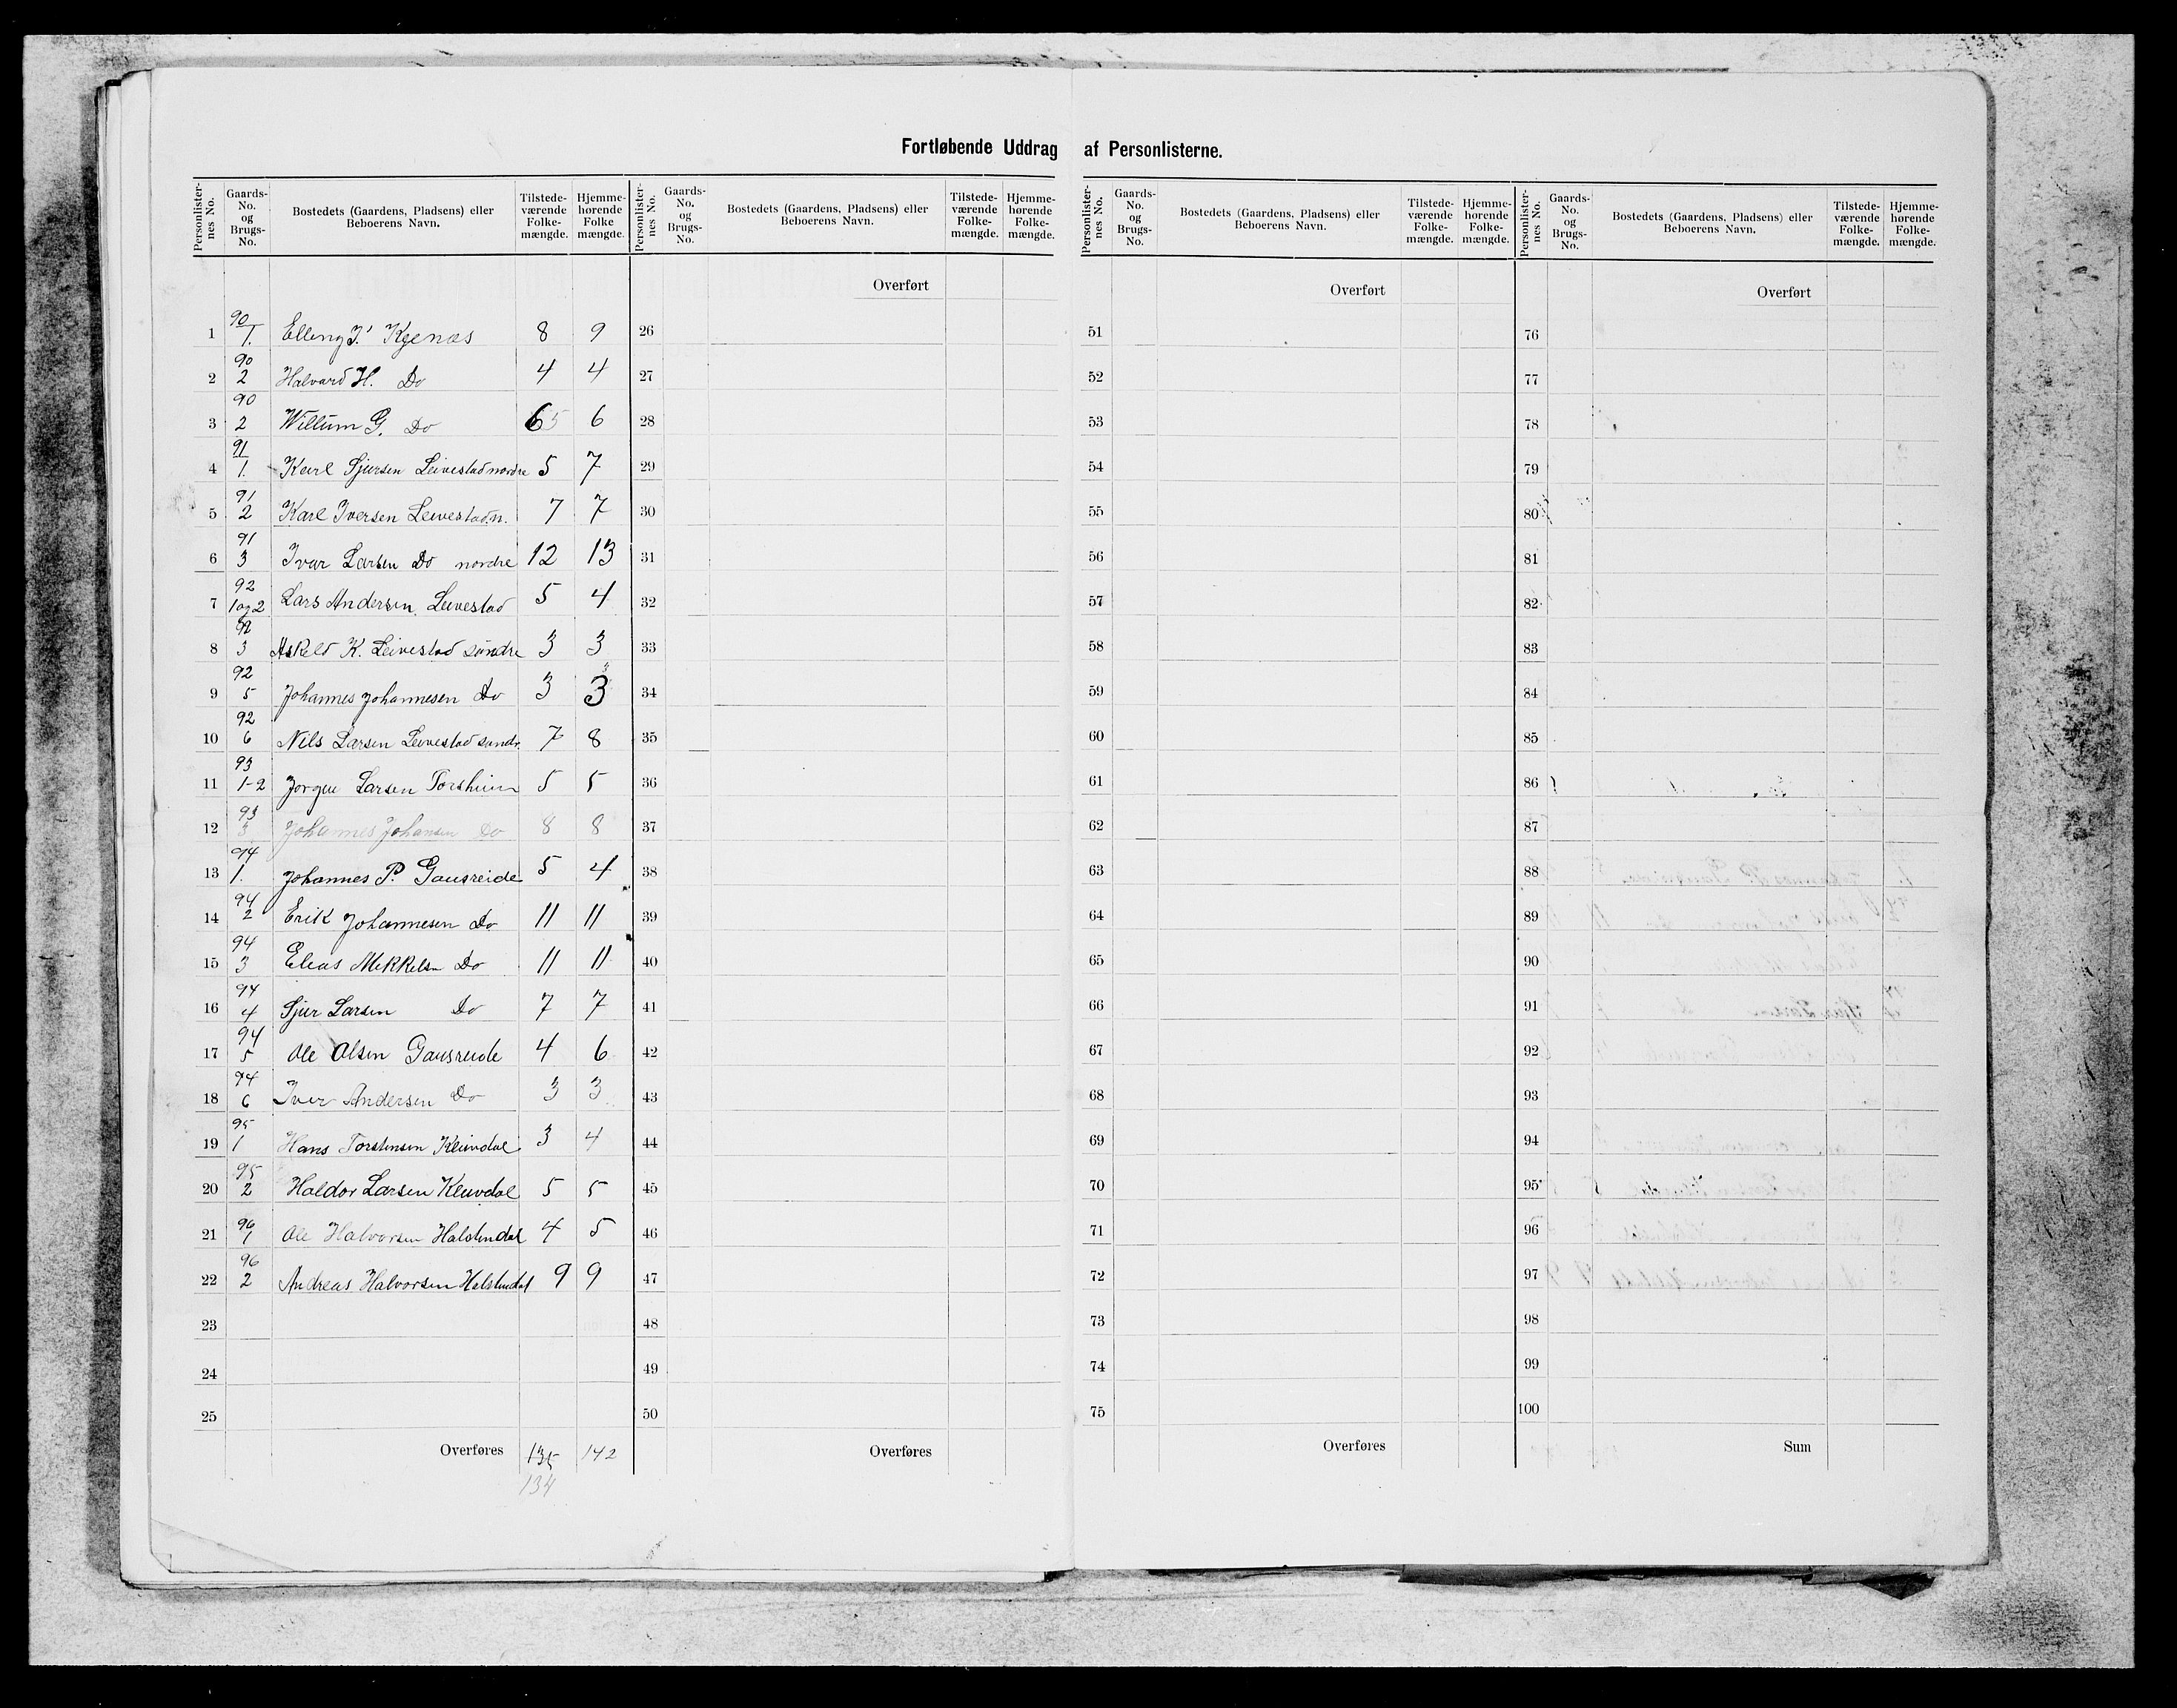 Fortløbende Uddrag af Personlisterne.
Personlisternes No. | Gaards-No. og Brugs-No. | Bostedets (Gaardens, Pladsens) eller Beboerens Navn. | Tilstedeværende Folkemængde. | Hjemmehørende Folkemængde.
Personlisternes No. | Gaards-No. og Brugs-No. | Bostedets (Gaardens, Pladsens) eller Beboerens Navn. | Tilstedeværende Folkemængde. | Hjemmehørende Folkemængde.
Personlisternes No. | Gaards-No. og Brugs-No. | Bostedets (Gaardens, Pladsens) eller Beboerens Navn. | Tilstedeværende Folkemængde. | Hjemmehørende Folkemængde.
Personlisternes No. | Gaards-No. og Brugs-No. | Bostedets (Gaardens, Pladsens) eller Beboerens Navn. | Tilstedeværende Folkemængde. | Hjemmehørende Folkemængde.
Overført Overført Overført
1 90/1. Elling J. Kjenæs 8 9 26 51 76
2 90/2 Halvard H. Do 4 4 27 52 77
3 90/2 Willum G. Do 6 5 6 28 53 78
4 91/1. Karl Sjursen Leivestad nordre 5 7 29 54 79
5 91/2 Karl Iversen Leivestad n. 7 7 30 55 80
6 91/3 Ivar Larsen Do nordre 12 13 31 56 81
7 92/1 og 2 Lars Andersen Leivestad 5 4 32 57 82
8 92/3 Askeld K. Leivestad søndre 3 3 33 58 83
9 92/5 Johannes Johannesen Do 3 3 34 59 84
10 92/6 Nils Larsen Leivestad søndr. 7 8 35 60 85
11 93/1-2 Jørgen Larsen Torsheim 5 5 36 61 86
12 93/3 Johannes Johansen Do 8 8 37 62 87
13 94/1. Johannes P. Gausreide 5 4 38 63 88
14 94/2 Erik Johannesen Do 11 11 39 64 89
15 94/3 Elias Mikkelsen Do 11 11 40 65 90
16 94/4 Sjur Larsen Do 7 7 41 66 91
17 94/5 Ole Olsen Gausreide 4 6 42 67 92
18 94/6 Iver Andersen Do 3 3 43 68 93
19 95/1 Hans Torstensen Kleivdal 3 4 44 69 94
20 95/2 Haldor Larsen Kleivdal 5 5 45 70 95
21 96/1 Ole Halvorsen Halstendal 4 5 46 71 96
22 96/2 Andreas Halvorsen Halstendal 9 9 47 72 97
23 48 73 98
24 49 74 99
25 50 75 100
Overføres 135 142 Overføres Overføres Sum
134